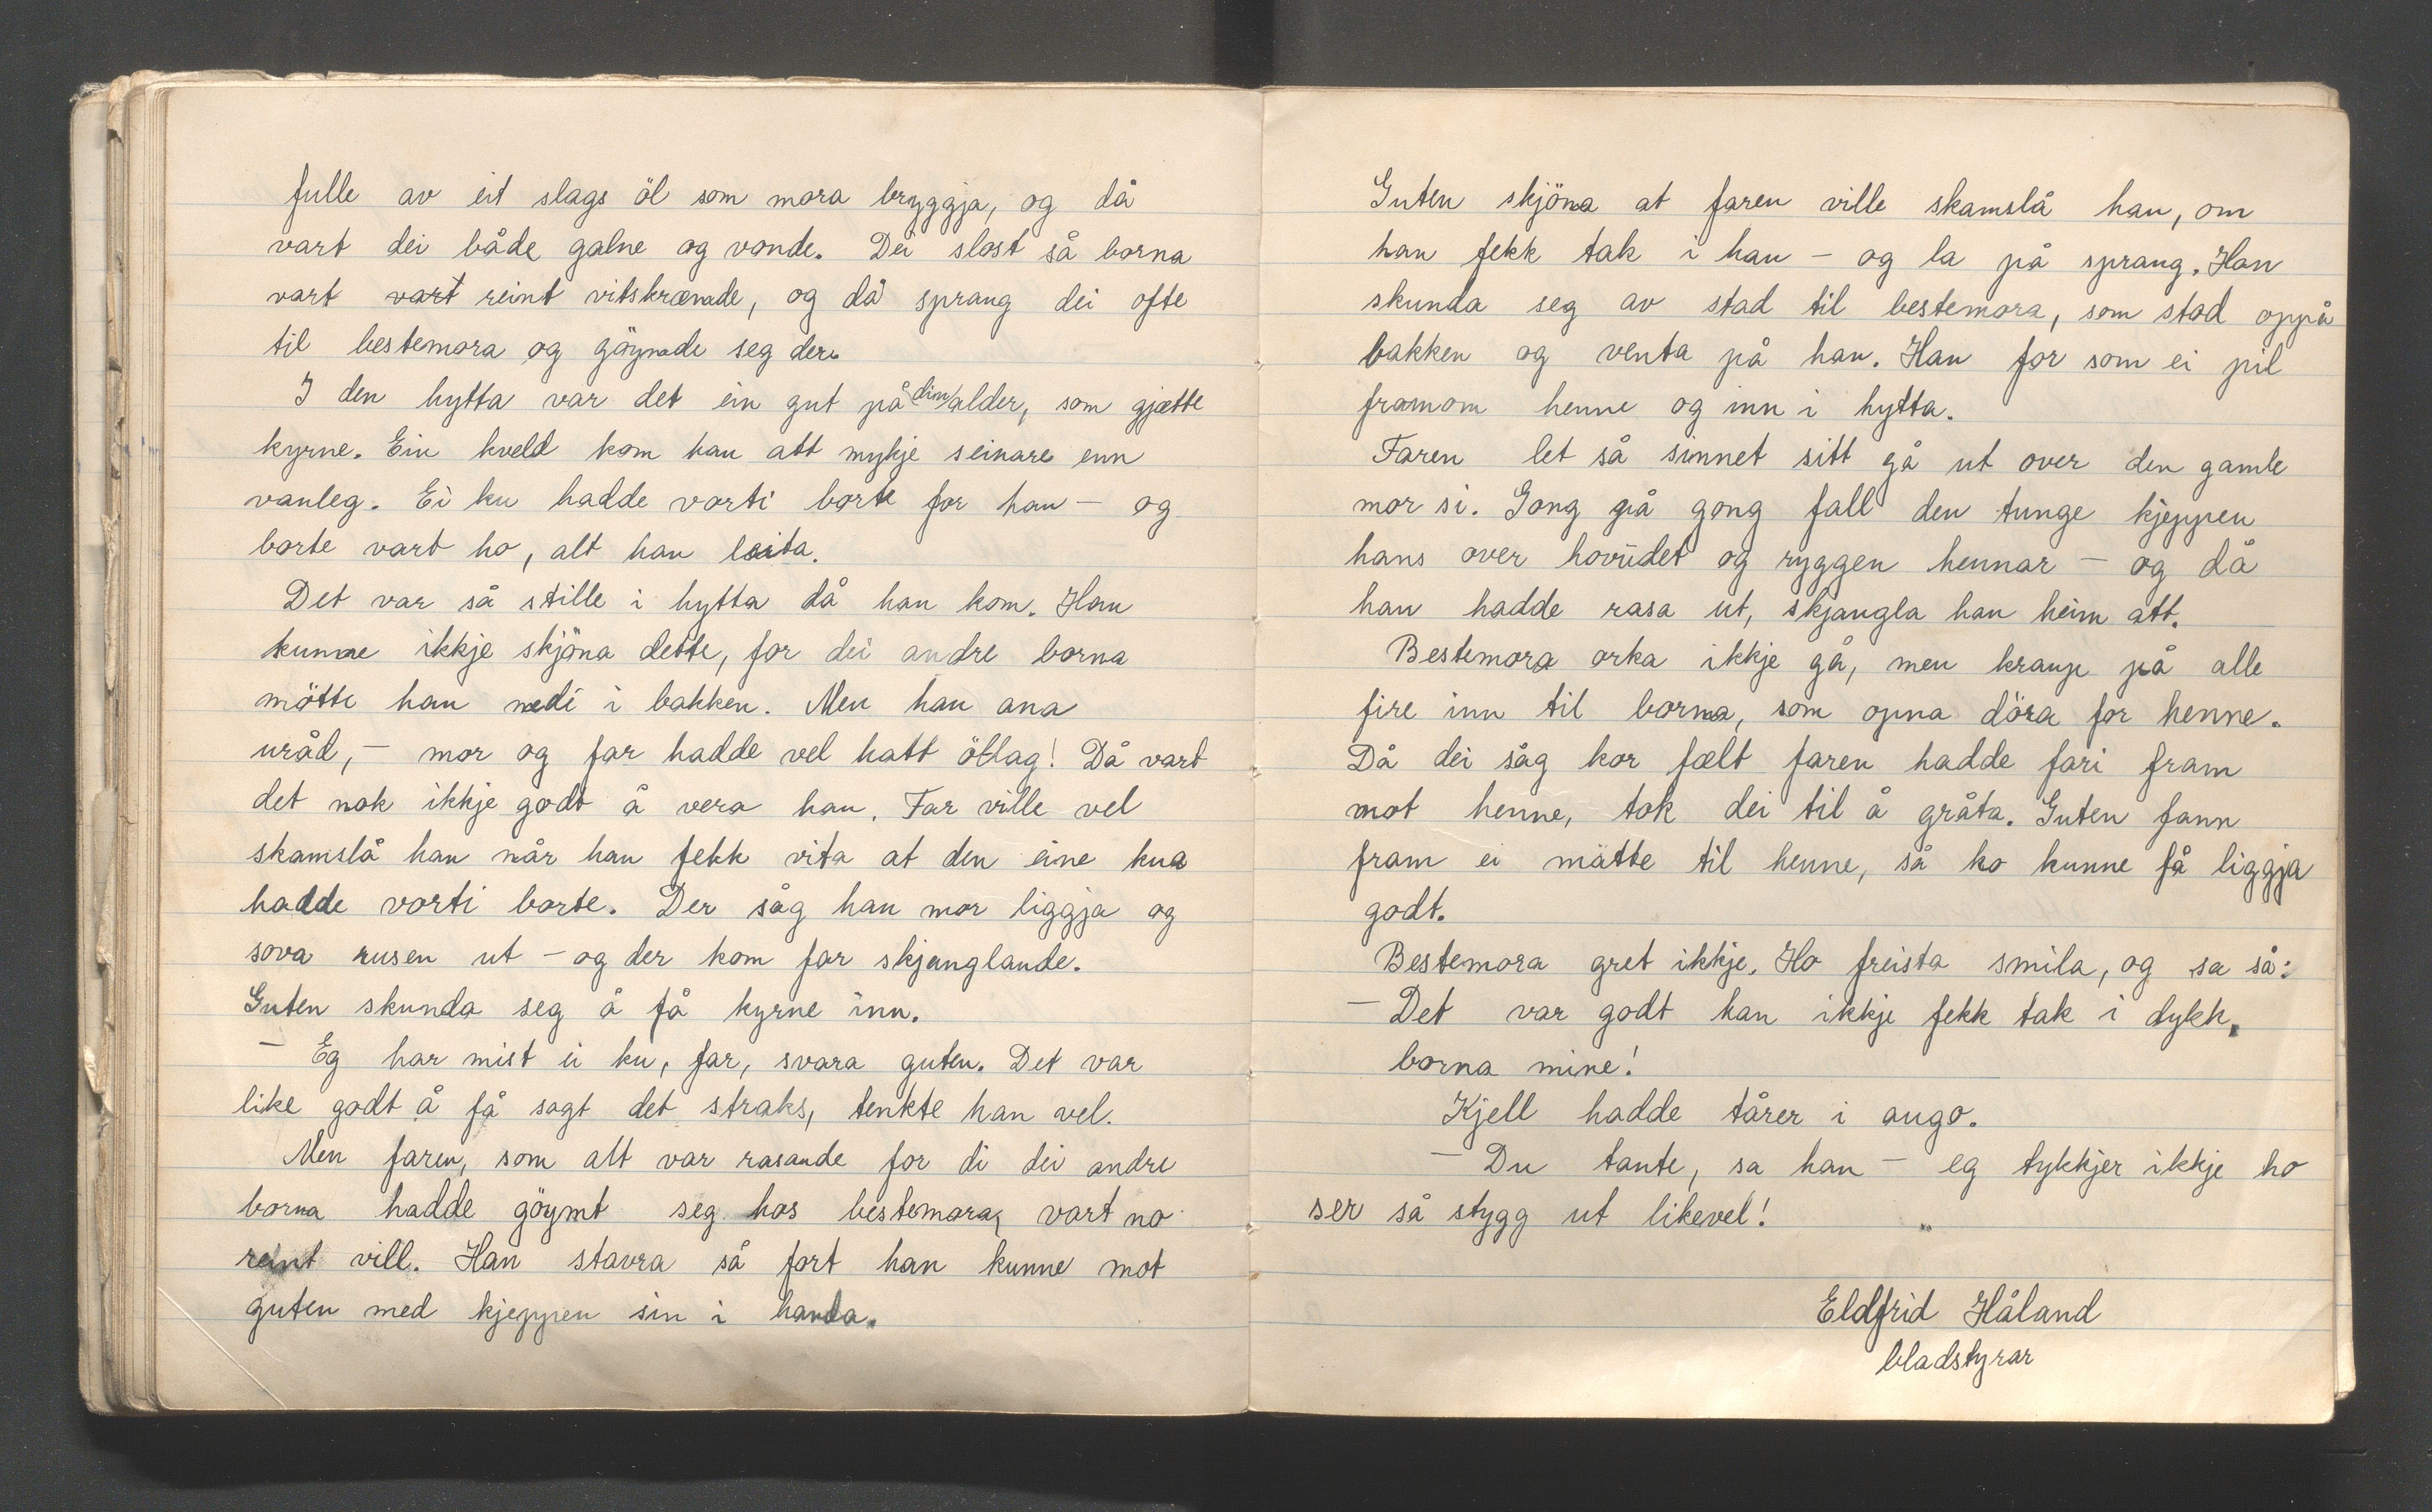 fulle av eit slags öl som mora bryggja, og då
vart dei både galne og vonde. Dei slost så borna
vart vart reint vitskræmde, og då sprang dei ofte
til bestemora og göymde seg der.
I den hytta var det ein gut på din alder, som gjætte
kyrne. Ein kveld kom han att mykje seinare enn
vanleg. Ei ku hadde vorti borte for han - og
borte vart ho, alt han leita.
Det var så stille i hytta då han kom. Han
kunne ikkje skjöna dette, for dei andre borna
mötte han nedi i bakken. Men han ana
uråd, - mor og far hadde vel hatt öllag! Då vart
det nok ikkje godt å vera han. Far ville vel
skamslå han når han fekk vita at den eine kua
hadde vorti borte. Der såg han mor liggja og
sova rusen ut - og der kom far skjanglande.
Guten skunda seg å få kyrne inn.
- Eg har mist ei ku, far, svara guten. Det var
like godt å få sagt det straks, tenkte han vel.
Men faren, som alt var rasande for di dei andre
borna hadde göymt seg hos bestemora, vart no
reint vill. Han stavra så fort han kunne mot
guten med kjeppen sin i handa.
Guten skjöna at faren ville skamslå han, om
han fekk tak i han - og la på sprang. Han
skunda seg av stad til bestemora, som stod oppå
bakken og venta på han. Han for som ei pil
framom henne og inn i hytta.
Faren let så sinnet sitt gå ut over den gamle
mor si. Gong på gong fall den tunge kjeppen
hans over hovudet og ryggen hennar - og då
han hadde rasa ut, skjangla han heim att.
Bestemora orka ikkje gå, men kraup på alle
fire inn til borna, som opna döra for henne.
Då dei såg kor fælt faren hadde fari fram
mot henne, tok dei til å gråta. Guten fann
fram ei måtte til henne, så ho kunne få liggja
godt.
Bestemora gret ikkje. Ho freista smila, og sa så:
- Det var godt han ikkje fekk tak i dykk,
borna mine!
Kjell hadde tårer i augo.
- Du tante, sa han - eg tykkjer ikkje ho
ser så stygg ut likevel!
Eldfrid Håland
bladstyrar